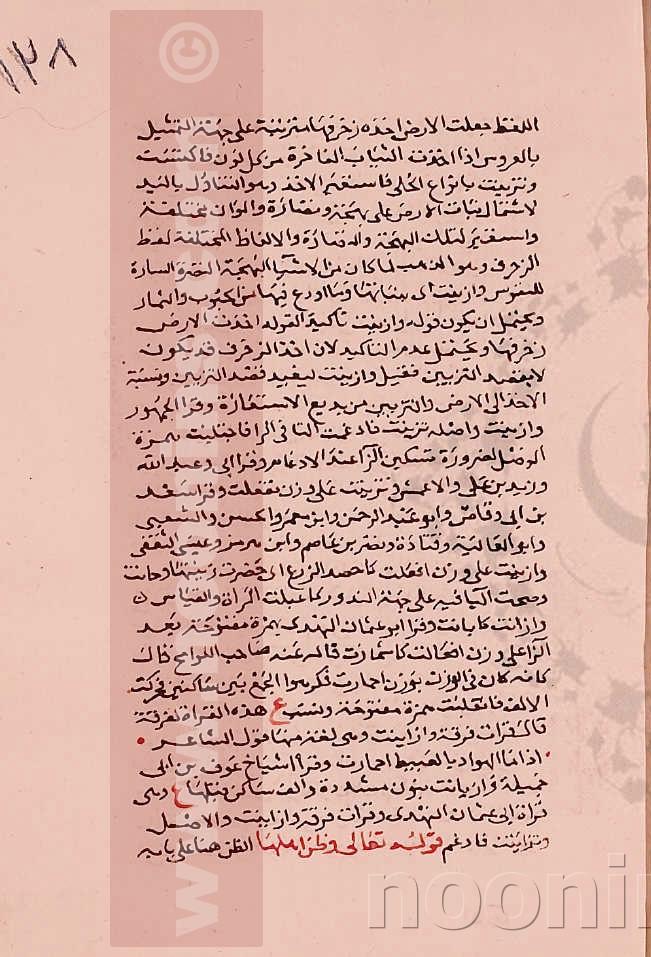 ١٣٨
اللفظ جعلت الارض اخذه زخرفها متزينة على جهة التمثيل
بالعروس اذا اخذت الثياب الفاخرة من كل لون فاكتست
وتزينت بانواع الحلى فاستعير الاخذ وهو التناول باليد
لاشتمال نبات الارض على بهجة ونضارة والوان مختلفة
واستعير لتلك البهجة والنضارة والالفاظ المختلفة لفظ
الزخرف وهو الذهب لما كان من الاشيا البهجة النضرة السارة
للنفوس وازينت اى بنباتها وما اودع فيها من الحبوب والثمار
ويحتمل ان يكون قوله وازينت تاكيد القوله اخذت الارض
زخرفها ويحتمل عدم التاكيد لان اخذ الزخرف قد يكون
لا بقصد التزيين فقيل وازينت ليفيد قصد التزيين ونسبة
الاخذ الى الارض والتزيين من بديع الاستعارة وقرا الجمهور
وازينت واصله تزينت فادغمت التا فى الزا فاجتلبت همزة
الوصل لضرورة تسكين الزا عند الادغام وقرا ابى وعبد الله
وزيد بن على والاعمش وتزينت على وزن تفعلت وقرا سعد
بن ابى وقاص وابو عبد الرحمن وابن معمر والحسن والشعبى
وابو العالية وقتادة ونصر بن عاصم وابن هرمز وعيسى الثقفى
وازينت على وزن افعلت كاحصد الزرع اى حضرت زينتها وحانت
وصحت اليا فيه على جهة الندور كما عبلت المراة والقياس
وازانت كابانت وقرا ابو عثمان النهدى بهمزة مفتوحة بعد
الزا على وزن افعالت كاسمارت قاله عنه صاحب اللوامح قال
كانه كان فى الوزن بوزن احمارت فكرهوا الجمع بين ساكنين فحركت
الالف فانقلبت همزة مفتوحة ونسبوع هذه القراة لفرقة
قال وقرات فرقة وازاينت وهى لغة منها قول الشاعر
اذا ما الهواد بالعبيط احمارت وقرا اشياخ عوف بن ابى
جميلة وازيانت بنون مشددة والف ساكن قبلهاع وهى
قراة ابى عثمان النهدى وقرات فرقة وازاينت والاصل
وتزاينت فادغم قوله تعالى وظن اهلها الظن هنا على بابه
nooni